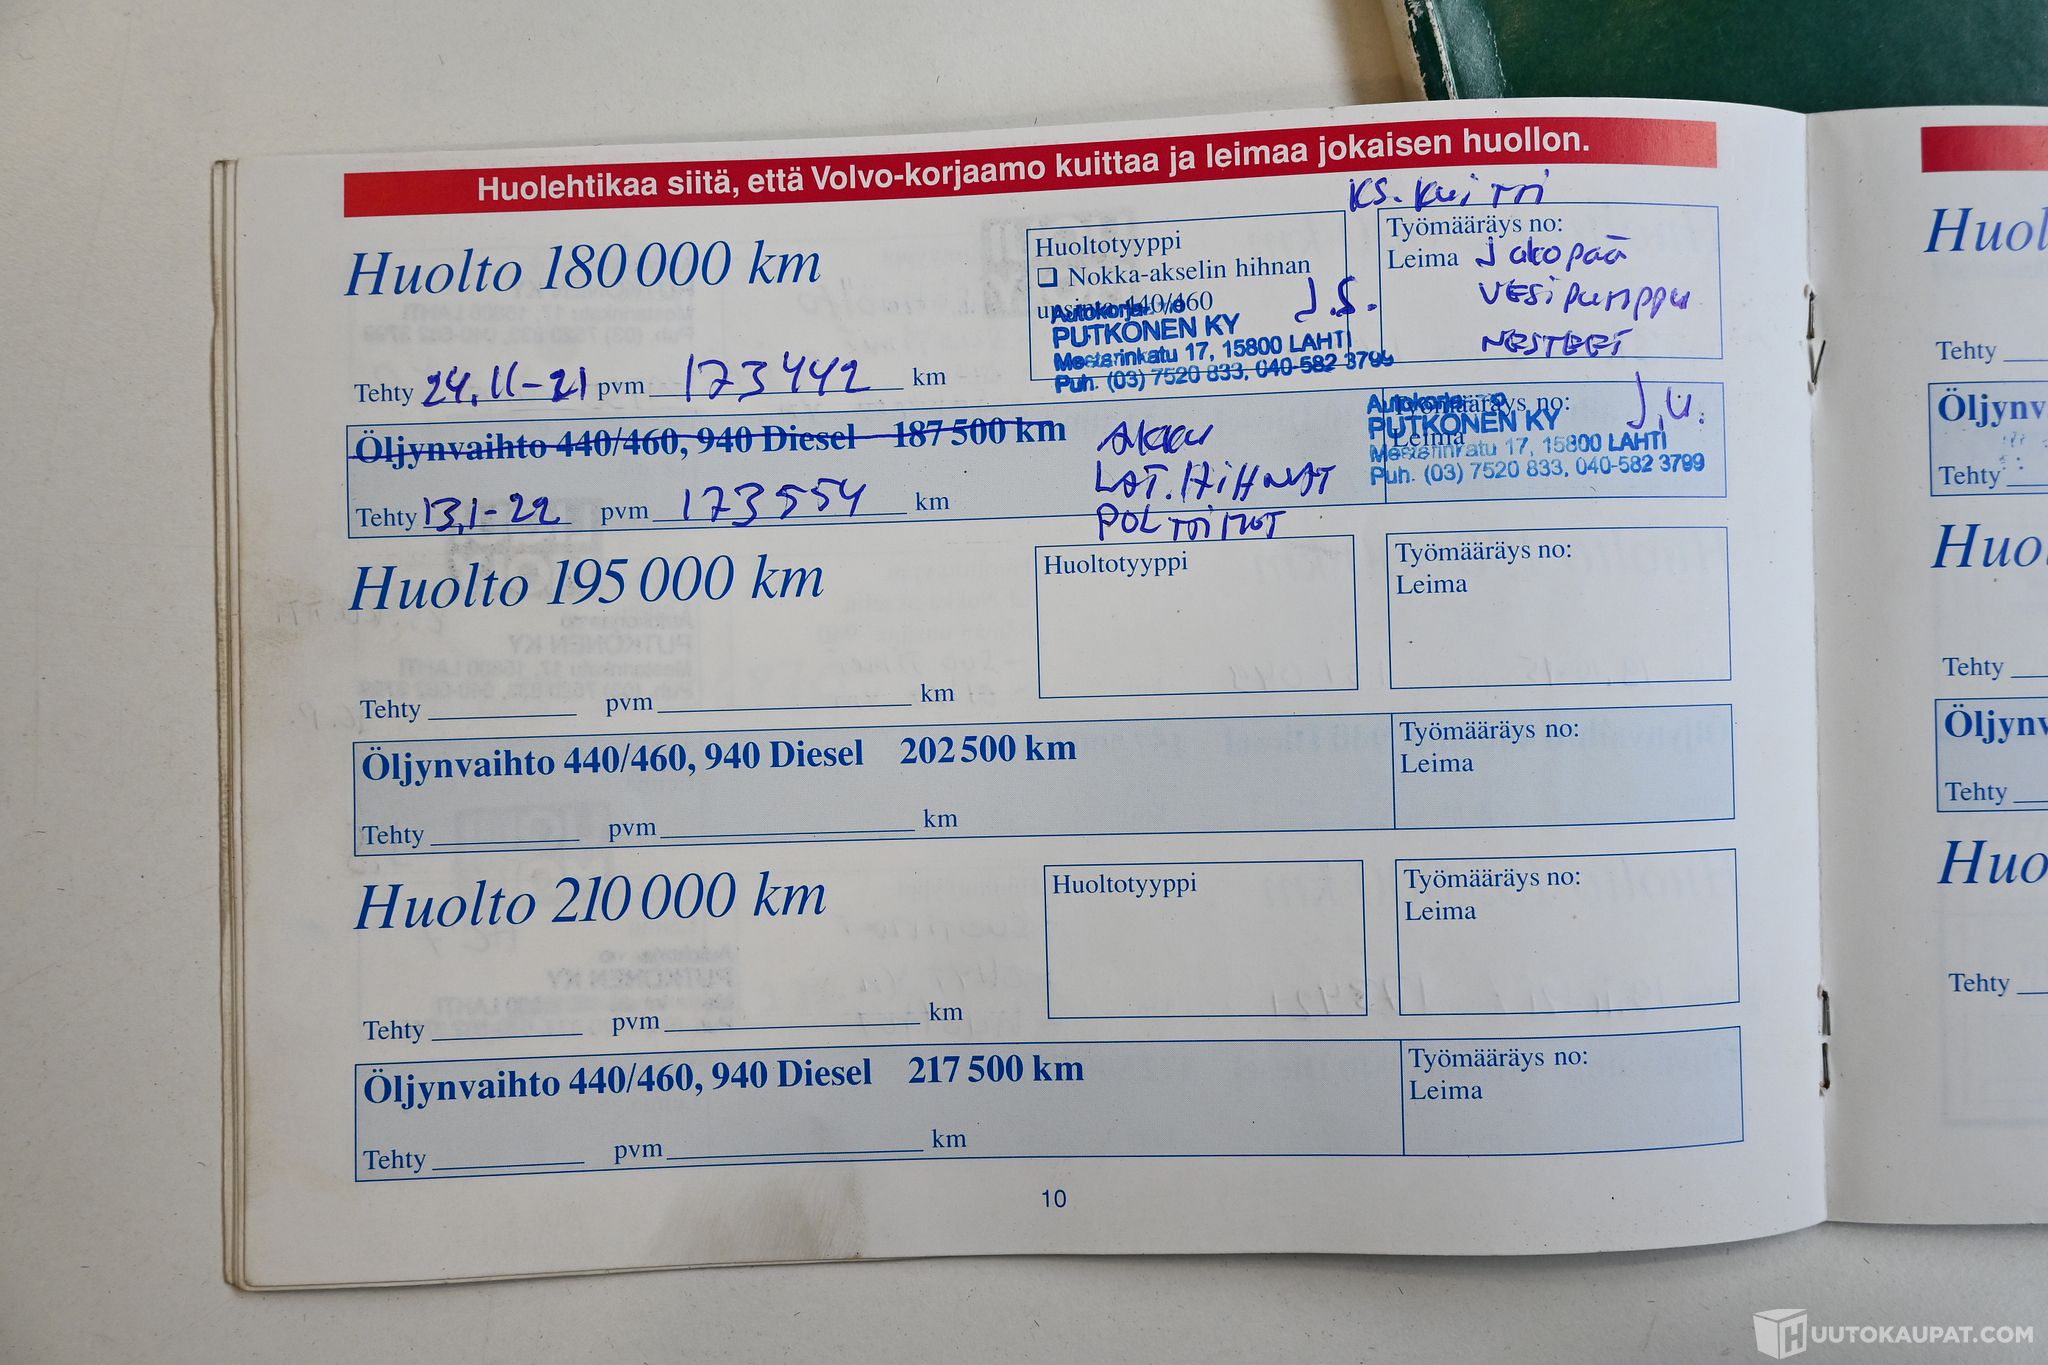 Huolehtikaa siitä, että Volvo-korjaamo kuittaa ja leimaa jokaisen huollon.
KS. KUITTI
Huolto 180 000 km
Huoltotyyppi
❑ Nokka-akselin hihnan
440/460
J.S.
PUTKONEN KY
Mestarinkatu 17, 15800 LAHTI
Puh. (03) 7520 833, 040-582 3799
Työmääräys no:
Leima Jakopää
VESIPUMPPU
NESTEET
Tehty 24.11-21 pvm 173442 km
Öljynvaihto 440/460, 940 Diesel 187 500 km
AKKU
LAT. HIHNAT
POLTTIMOT
Työmääräys no:
Leima
J.U.
PUTKONEN KY
Mestarinkatu 17, 15800 LAHTI
Puh. (03) 7520 833, 040-582 3799
Tehty 13.1-22 pvm 173554 km
Huolto 195 000 km
Huoltotyyppi
Työmääräys no:
Leima
Tehty pvm km
Öljynvaihto 440/460, 940 Diesel 202 500 km
Työmääräys no:
Leima
Tehty pvm km
Huolto 210 000 km
Huoltotyyppi
Työmääräys no:
Leima
Tehty pvm km
Öljynvaihto 440/460, 940 Diesel 217 500 km
Työmääräys no:
Leima
Tehty pvm km
10
Tehty
Öljynv
Tehty
Tehty
Öljynv
Tehty
Tehty
HUUTOKAUPAT.COM